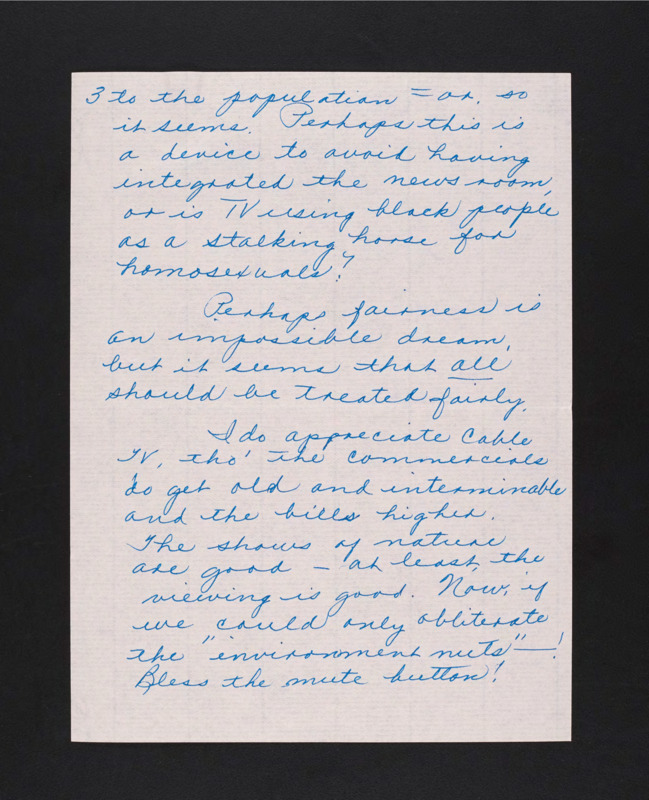 3 to the population = or, so
it seems. Perhaps this is
a device to avoid having
integrated the news room,
or is TV using black people
as a stalking horse for
homosexuals?
Perhaps fairness is
an impossible dream,
but it seems that all
should be treated fairly.
I do appreciate Cable
TV, tho' the commercials
do get old and interminable
and the bills higher.
The shows of nature
are good – at least, the
viewing is good. Now, if
we could only obliterate
the "environment nuts" —!
Bless the mute button!